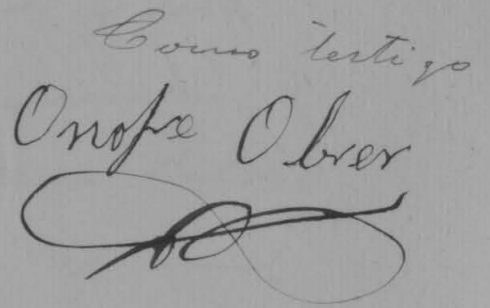 Como testigo
Onofre Obrer